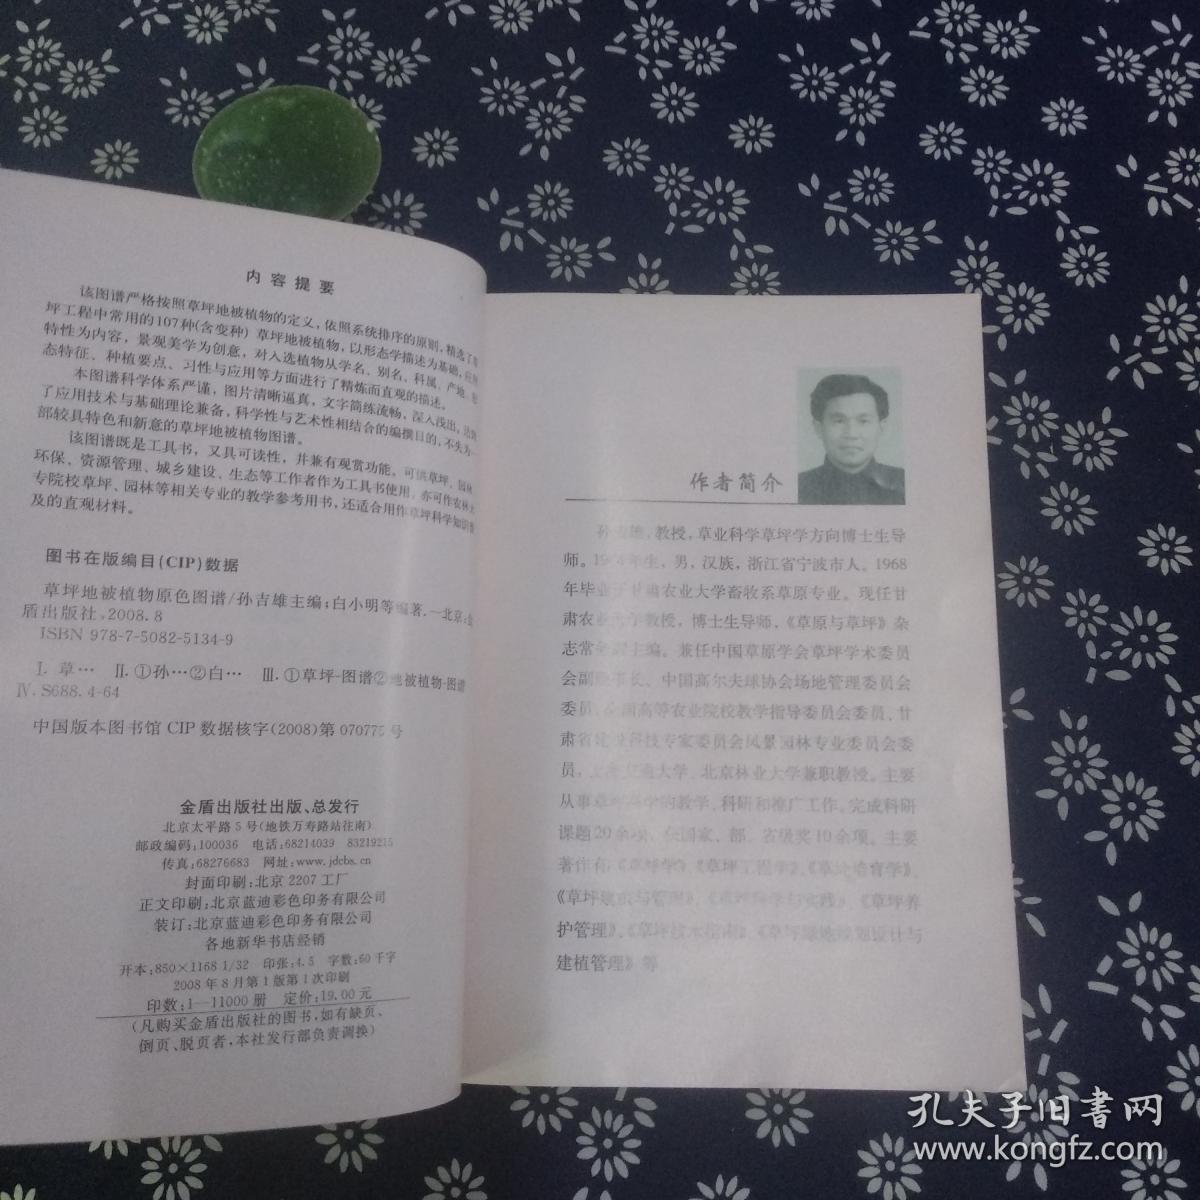 内容提要
该图谱严格按照草坪地被植物的定义,依照系统排序的原则,精选了草
坪工程中常用的107种(含变种)草坪地被植物,以形态学描述为基础,应用
特性为内容,景观美学为创意,对入选植物从学名、别名、科属、产地、形
态特征、种植要点、习性与应用等方面进行了精炼而直观的描述。
本图谱科学体系严谨,图片清晰逼真,文字简练流畅、深入浅出,达到
了应用技术与基础理论兼备,科学性与艺术性相结合的编撰目的,不失为一
部较具特色和新意的草坪地被植物图谱。
该图谱既是工具书,又具可读性,并兼有观赏功能。可供草坪、园林、
环保、资源管理、城乡建设、生态等工作者作为工具书使用,亦可作农林大
专院校草坪、园林等相关专业的教学参考用书,还适合用作草坪科学知识普
及的直观材料。
图书在版编目(CIP)数据
草坪地被植物原色图谱/孙吉雄主编;白小明等编著.—北京:金
盾出版社,2008.8
ISBN 978-7-5082-5134-9
Ⅰ.草… Ⅱ.①孙…②白… Ⅲ.①草坪-图谱②地被植物-图谱
Ⅳ.S688.4-64
中国版本图书馆CIP数据核字(2008)第070775号
金盾出版社出版、总发行
北京太平路5号(地铁万寿路站往南)
邮政编码:100036 电话:68214039 83219215
传真:68276683 网址:www.jdcbs.cn
封面印刷:北京2207工厂
正文印刷:北京蓝迪彩色印务有限公司
装订:北京蓝迪彩色印务有限公司
各地新华书店经销
开本:850×1168 1/32 印张:4.5 字数:60千字
2008年8月第1版第1次印刷
印数:1—11000册 定价:19.00元
(凡购买金盾出版社的图书,如有缺页、
倒页、脱页者,本社发行部负责调换)
作者简介
孙吉雄,教授,草业科学草坪学方向博士生导
师。19 年生,男,汉族,浙江省宁波市人。1968
年毕业于甘肃农业大学畜牧系草原专业。现任甘
肃农业大学教授,博士生导师,《草原与草坪》杂
志常务副主编。兼任中国草原学会草坪学术委员
会副理事长、中国高尔夫球协会场地管理委员会
委员、全国高等农业院校教学指导委员会委员、甘
肃省建设科技专家委员会风景园林专业委员会委
员,上海交通大学、北京林业大学兼职教授。主要
从事草坪科学的教学、科研和推广工作。完成科研
课题20余项、获国家、部、省级奖10余项。主要
著作有《草坪学》、《草坪工程学》、《草坪培育学》、
《草坪建植与管理》、《草坪科学与实践》、《草坪养
护管理》、《草坪技术指南》、《草坪绿地规划设计与
建植管理》等
孔夫子旧书网
www.kongfz.com